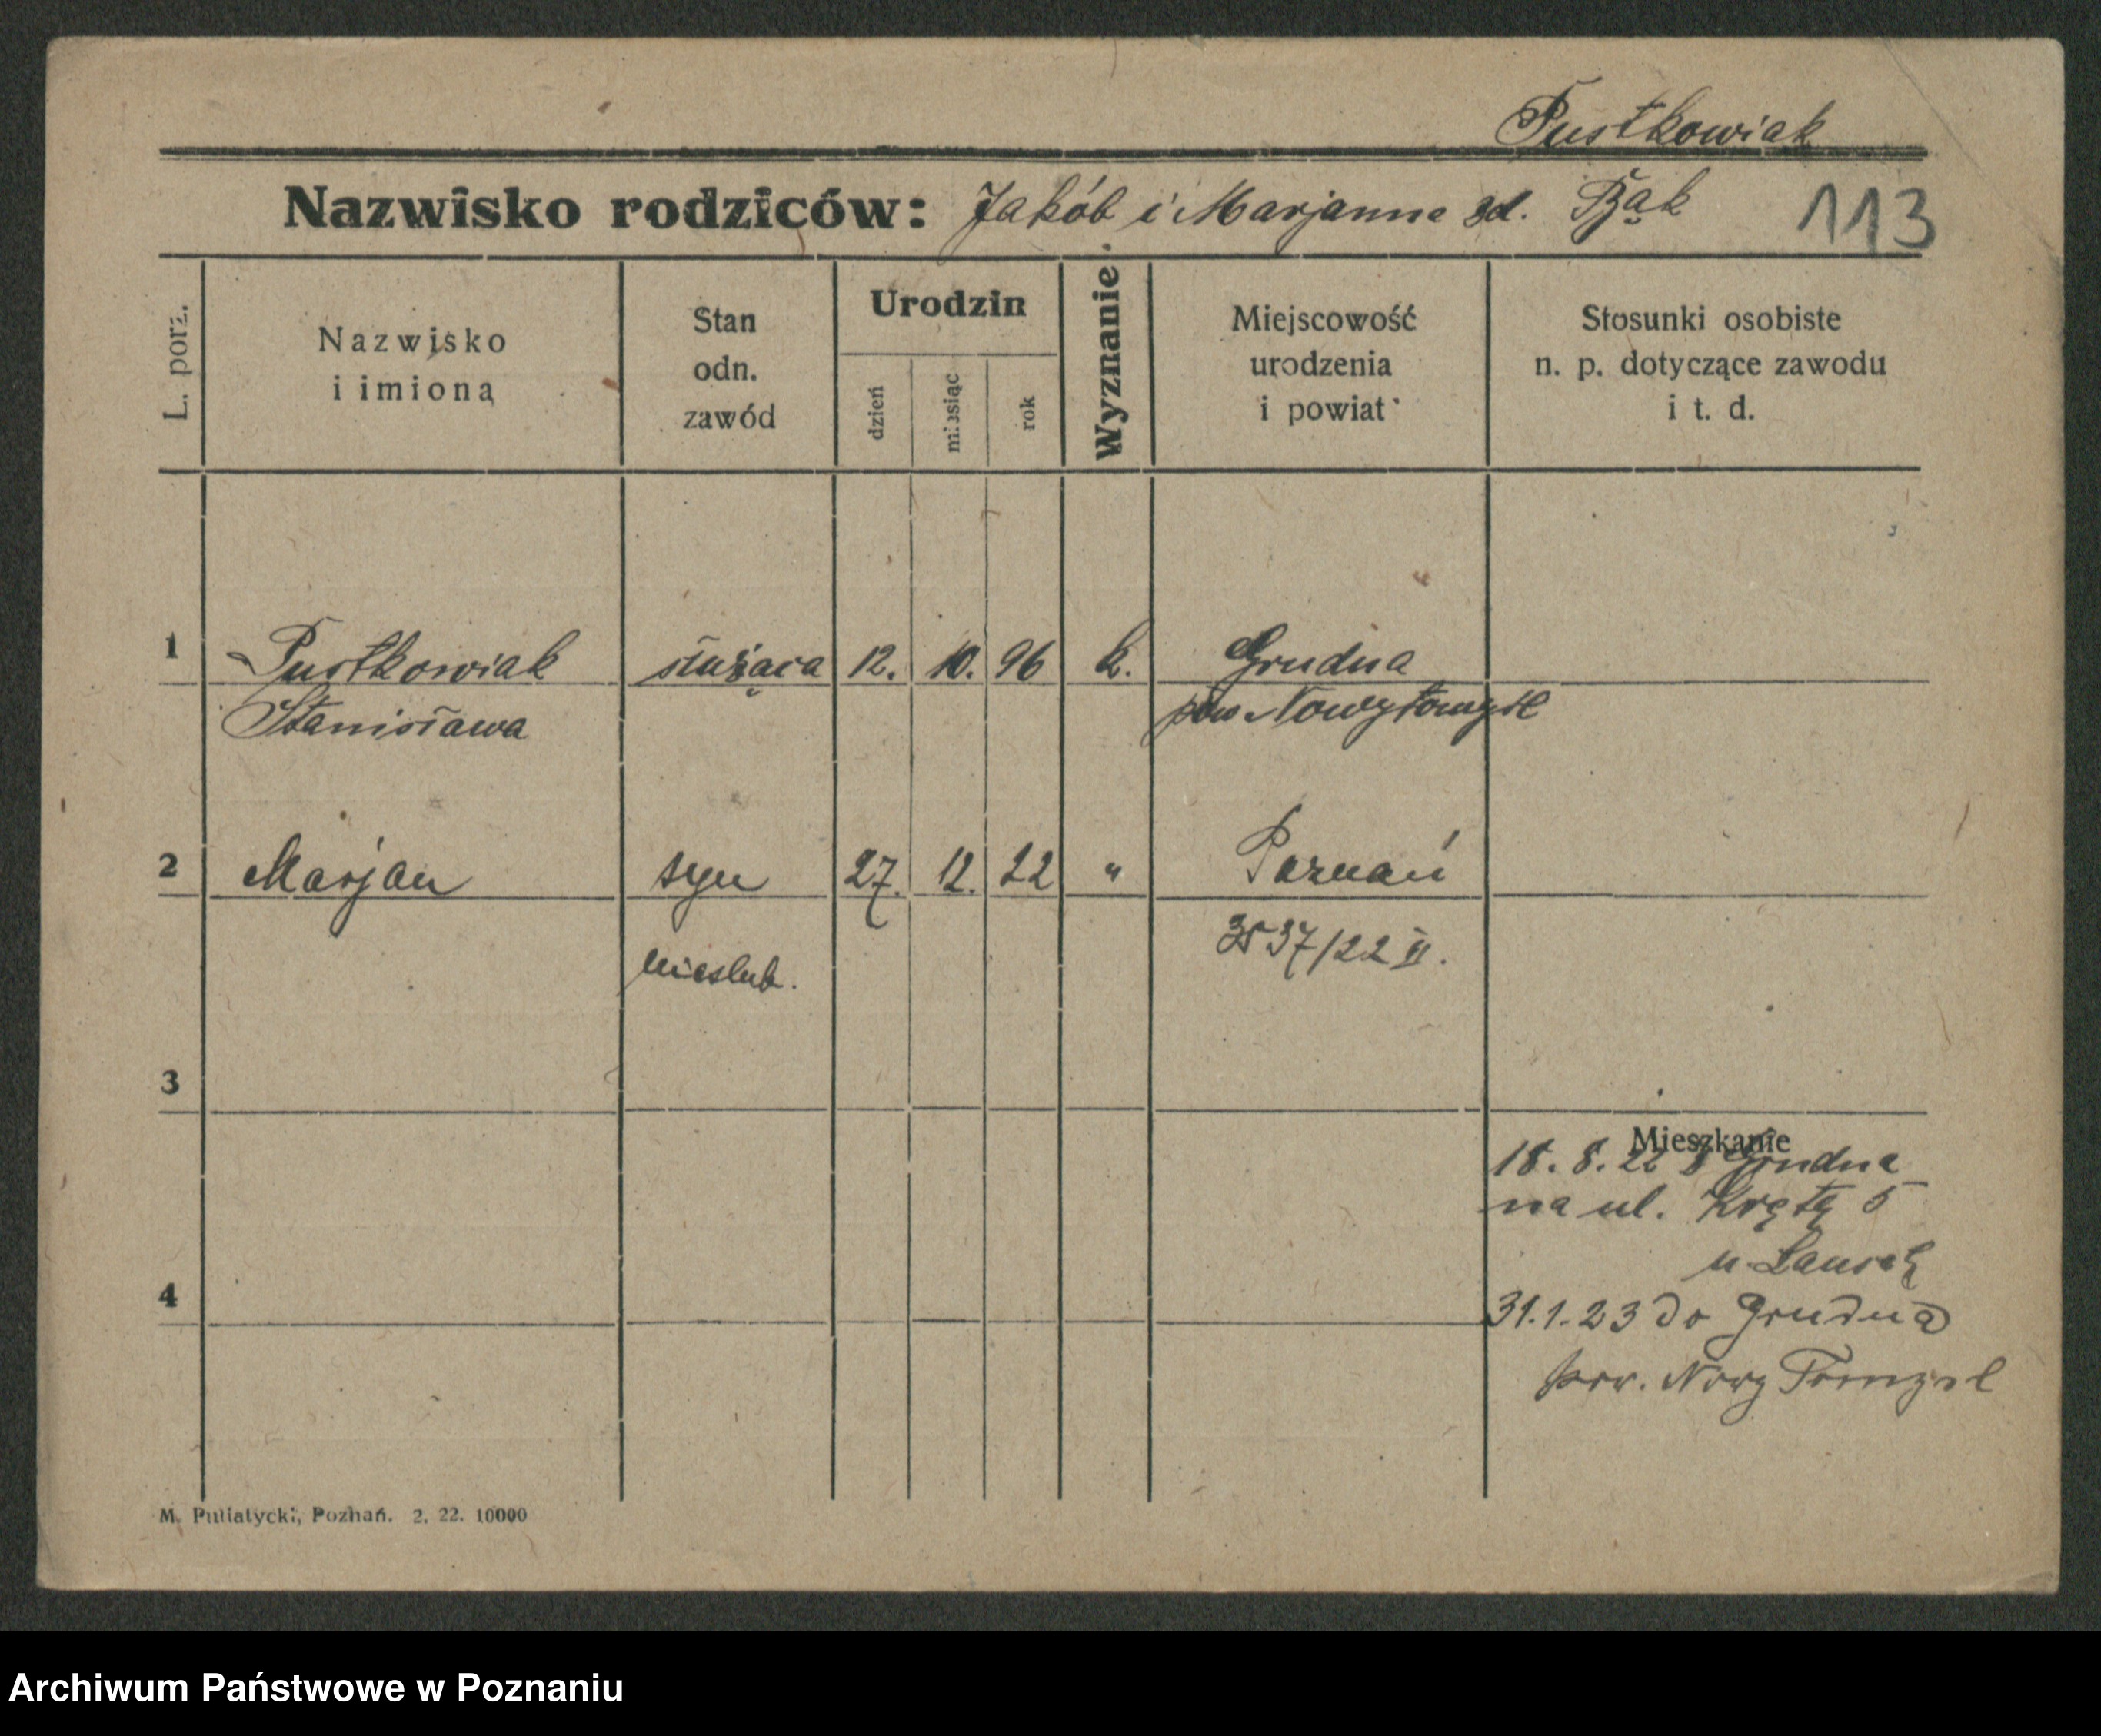 Pustkowiak
Nazwisko rodziców: Jakób i Marjanna zd. Bąk 113
L. porz.
Nazwisko
i imiona
Stan
odn.
zawód
Urodzin
dzień
miesiąc
rok
Wyznanie.
Miejscowość
urodzenia
i powiat
Stosunki osobiste
n. p. dotyczące zawodu
i t. d.
1 Pustkowiak służąca 12. 10. 96 k. Grudna
Stanisława pow Nowytomyśl
2 Marjan syn 27. 12. 22 " Poznań
nieslub. 3537/22 II.
3
Mieszkanie
18. 8. 22 z Grudna
na ul. Krętą 5
u
4
31.1.23 do Grudna
pow. Nowy Tomysl
M. Putiatycki, Poznań. 2. 22. 10000
Archiwum Państwowe w Poznaniu